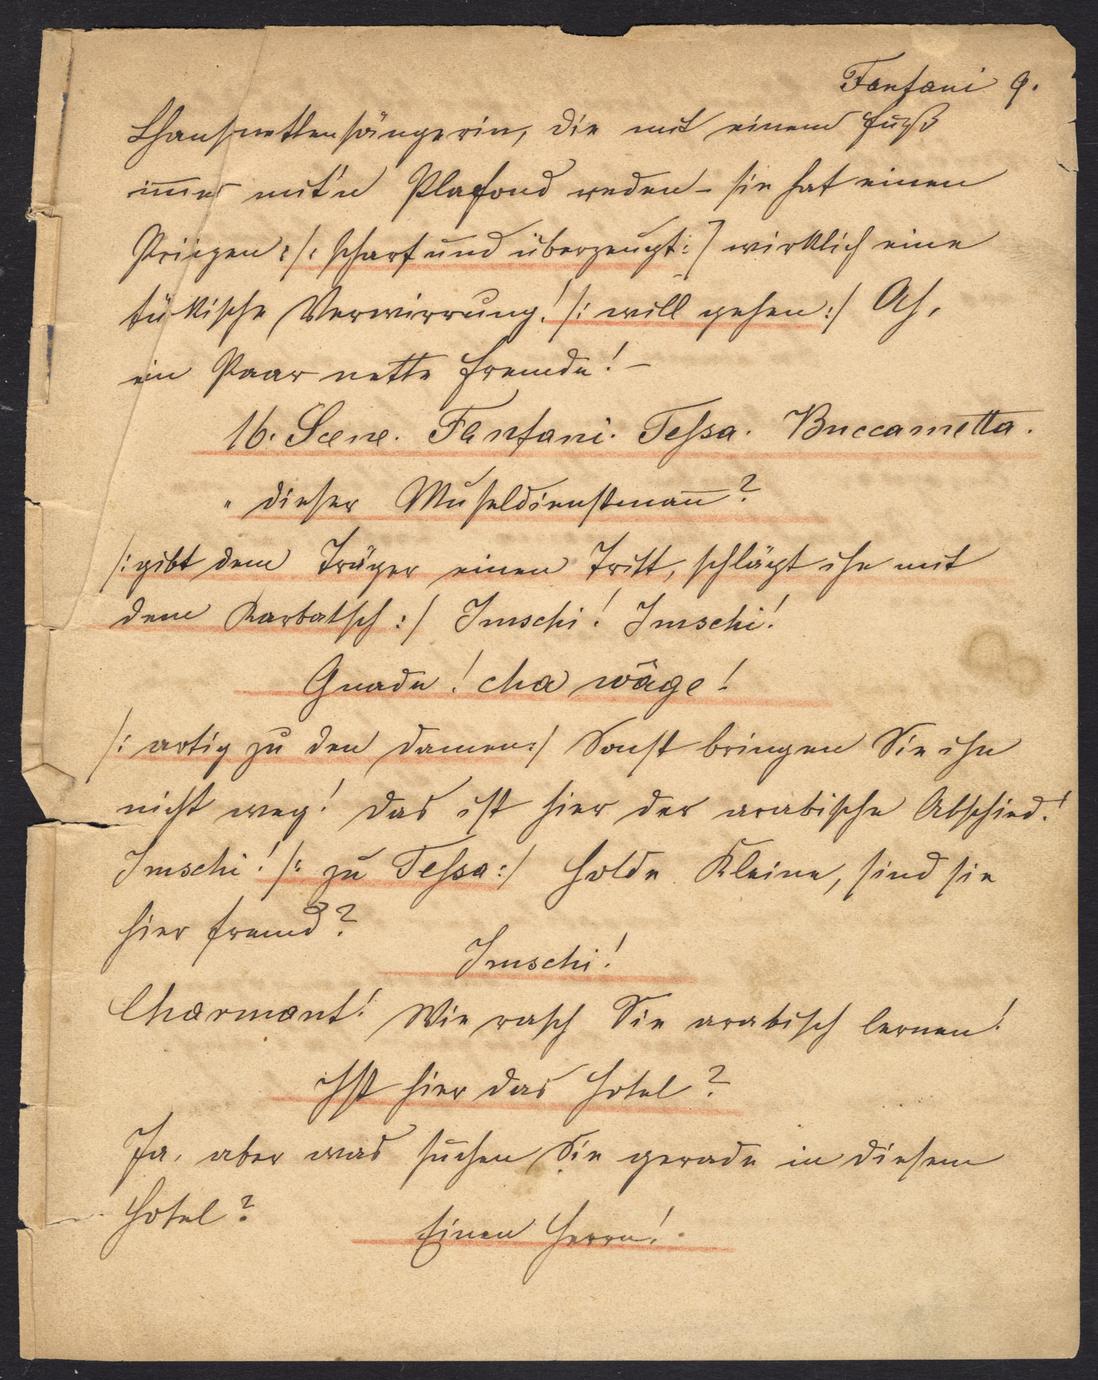 Fanfani 9.
Chansonettensängerin, die mit einem Fuß
im̅er mit'n Plafond reden – sie hat einen
Prinzen: /: scharf und überzeugt :/ wirklich eine
türkische Verwirrung! /: will gehen :/ Ah,
ein Paar nette Fremde! –
16. Scene. Fanfani. Tessa. Buccametta.
" dieser Museldienstman̅?
/: gibt dem Träger einen Tritt, schlägt ihn mit
dem Karbatsch :/ Imschi! Imschi!
Gnade! cha wäge!
/: artig zu den Damen :/ Sonst bringen Sie ihn
nicht weg! Das ist hier der arabische Abschied!
Imschi! /: zu Tessa :/ Holde Kleine, sind sie
hier fremd?
Imschi!
Charmant! Wie rasch Sie arabisch lernen!
Ist hier das Hotel?
Ja, aber was suchen Sie gerade in diesem
Hotel?
Einen Herrn!